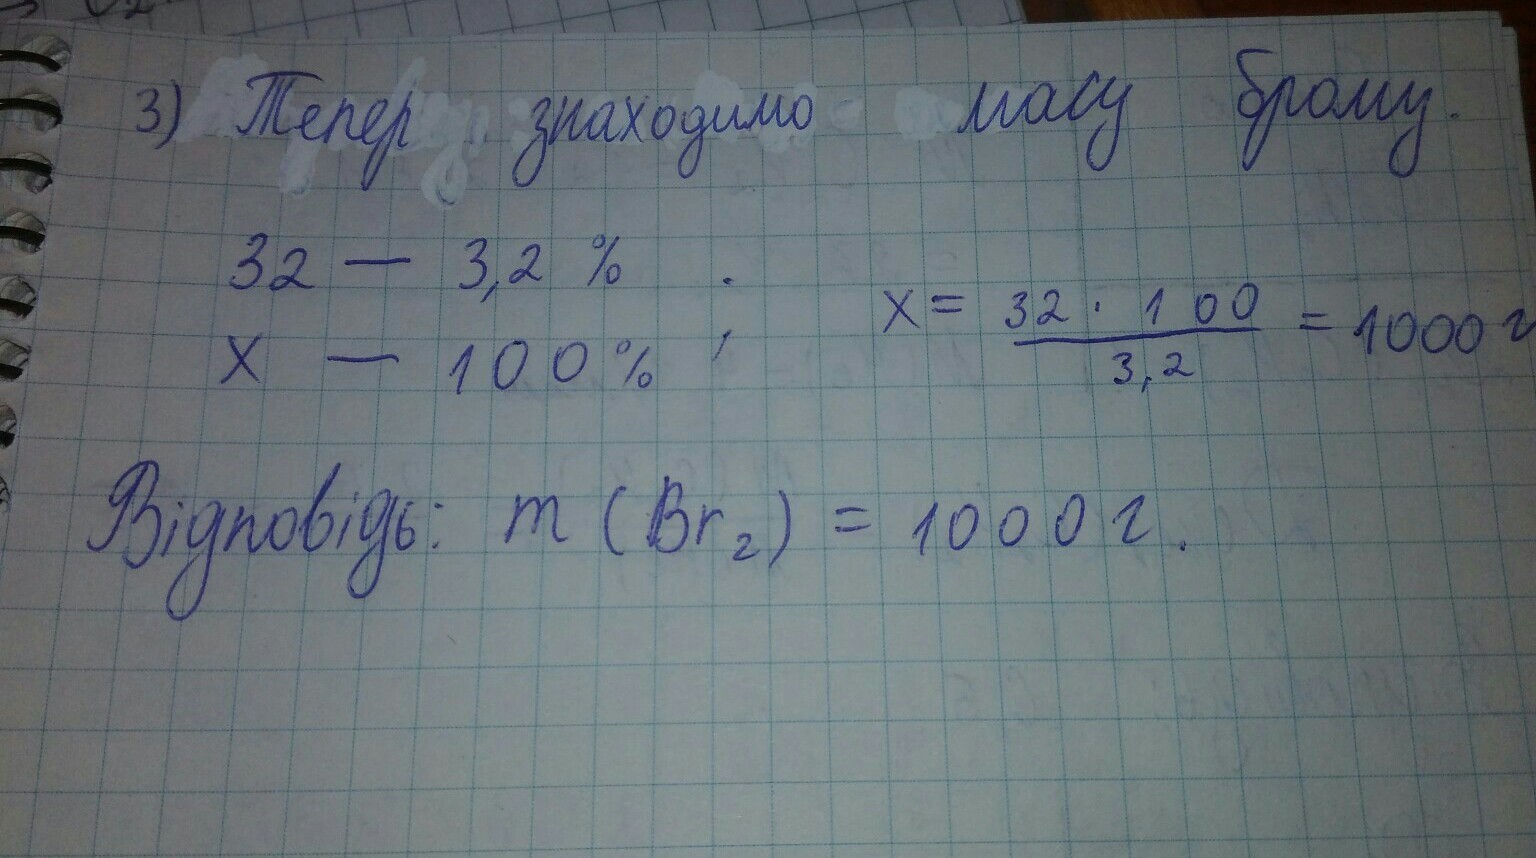 3) Тепер знаходимо масу брому.
32 — 3,2 % .
x — 100% ,
x = 32 · 100 / 3,2 = 1000 г
Відповідь: m (Br2) = 1000 г.